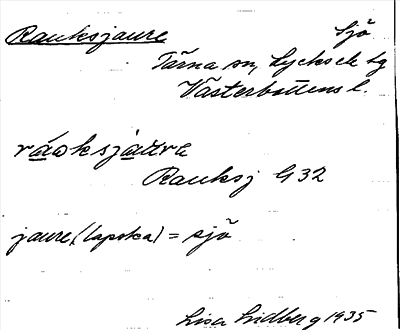 Rauksjaure Sjö
Tärna sn, Lycksele lg
Västerbottens l.
ráoksjaŭrɛ
Rauksj G 32
jaure, (lapska) = sjö
Lisa Lidberg 1935